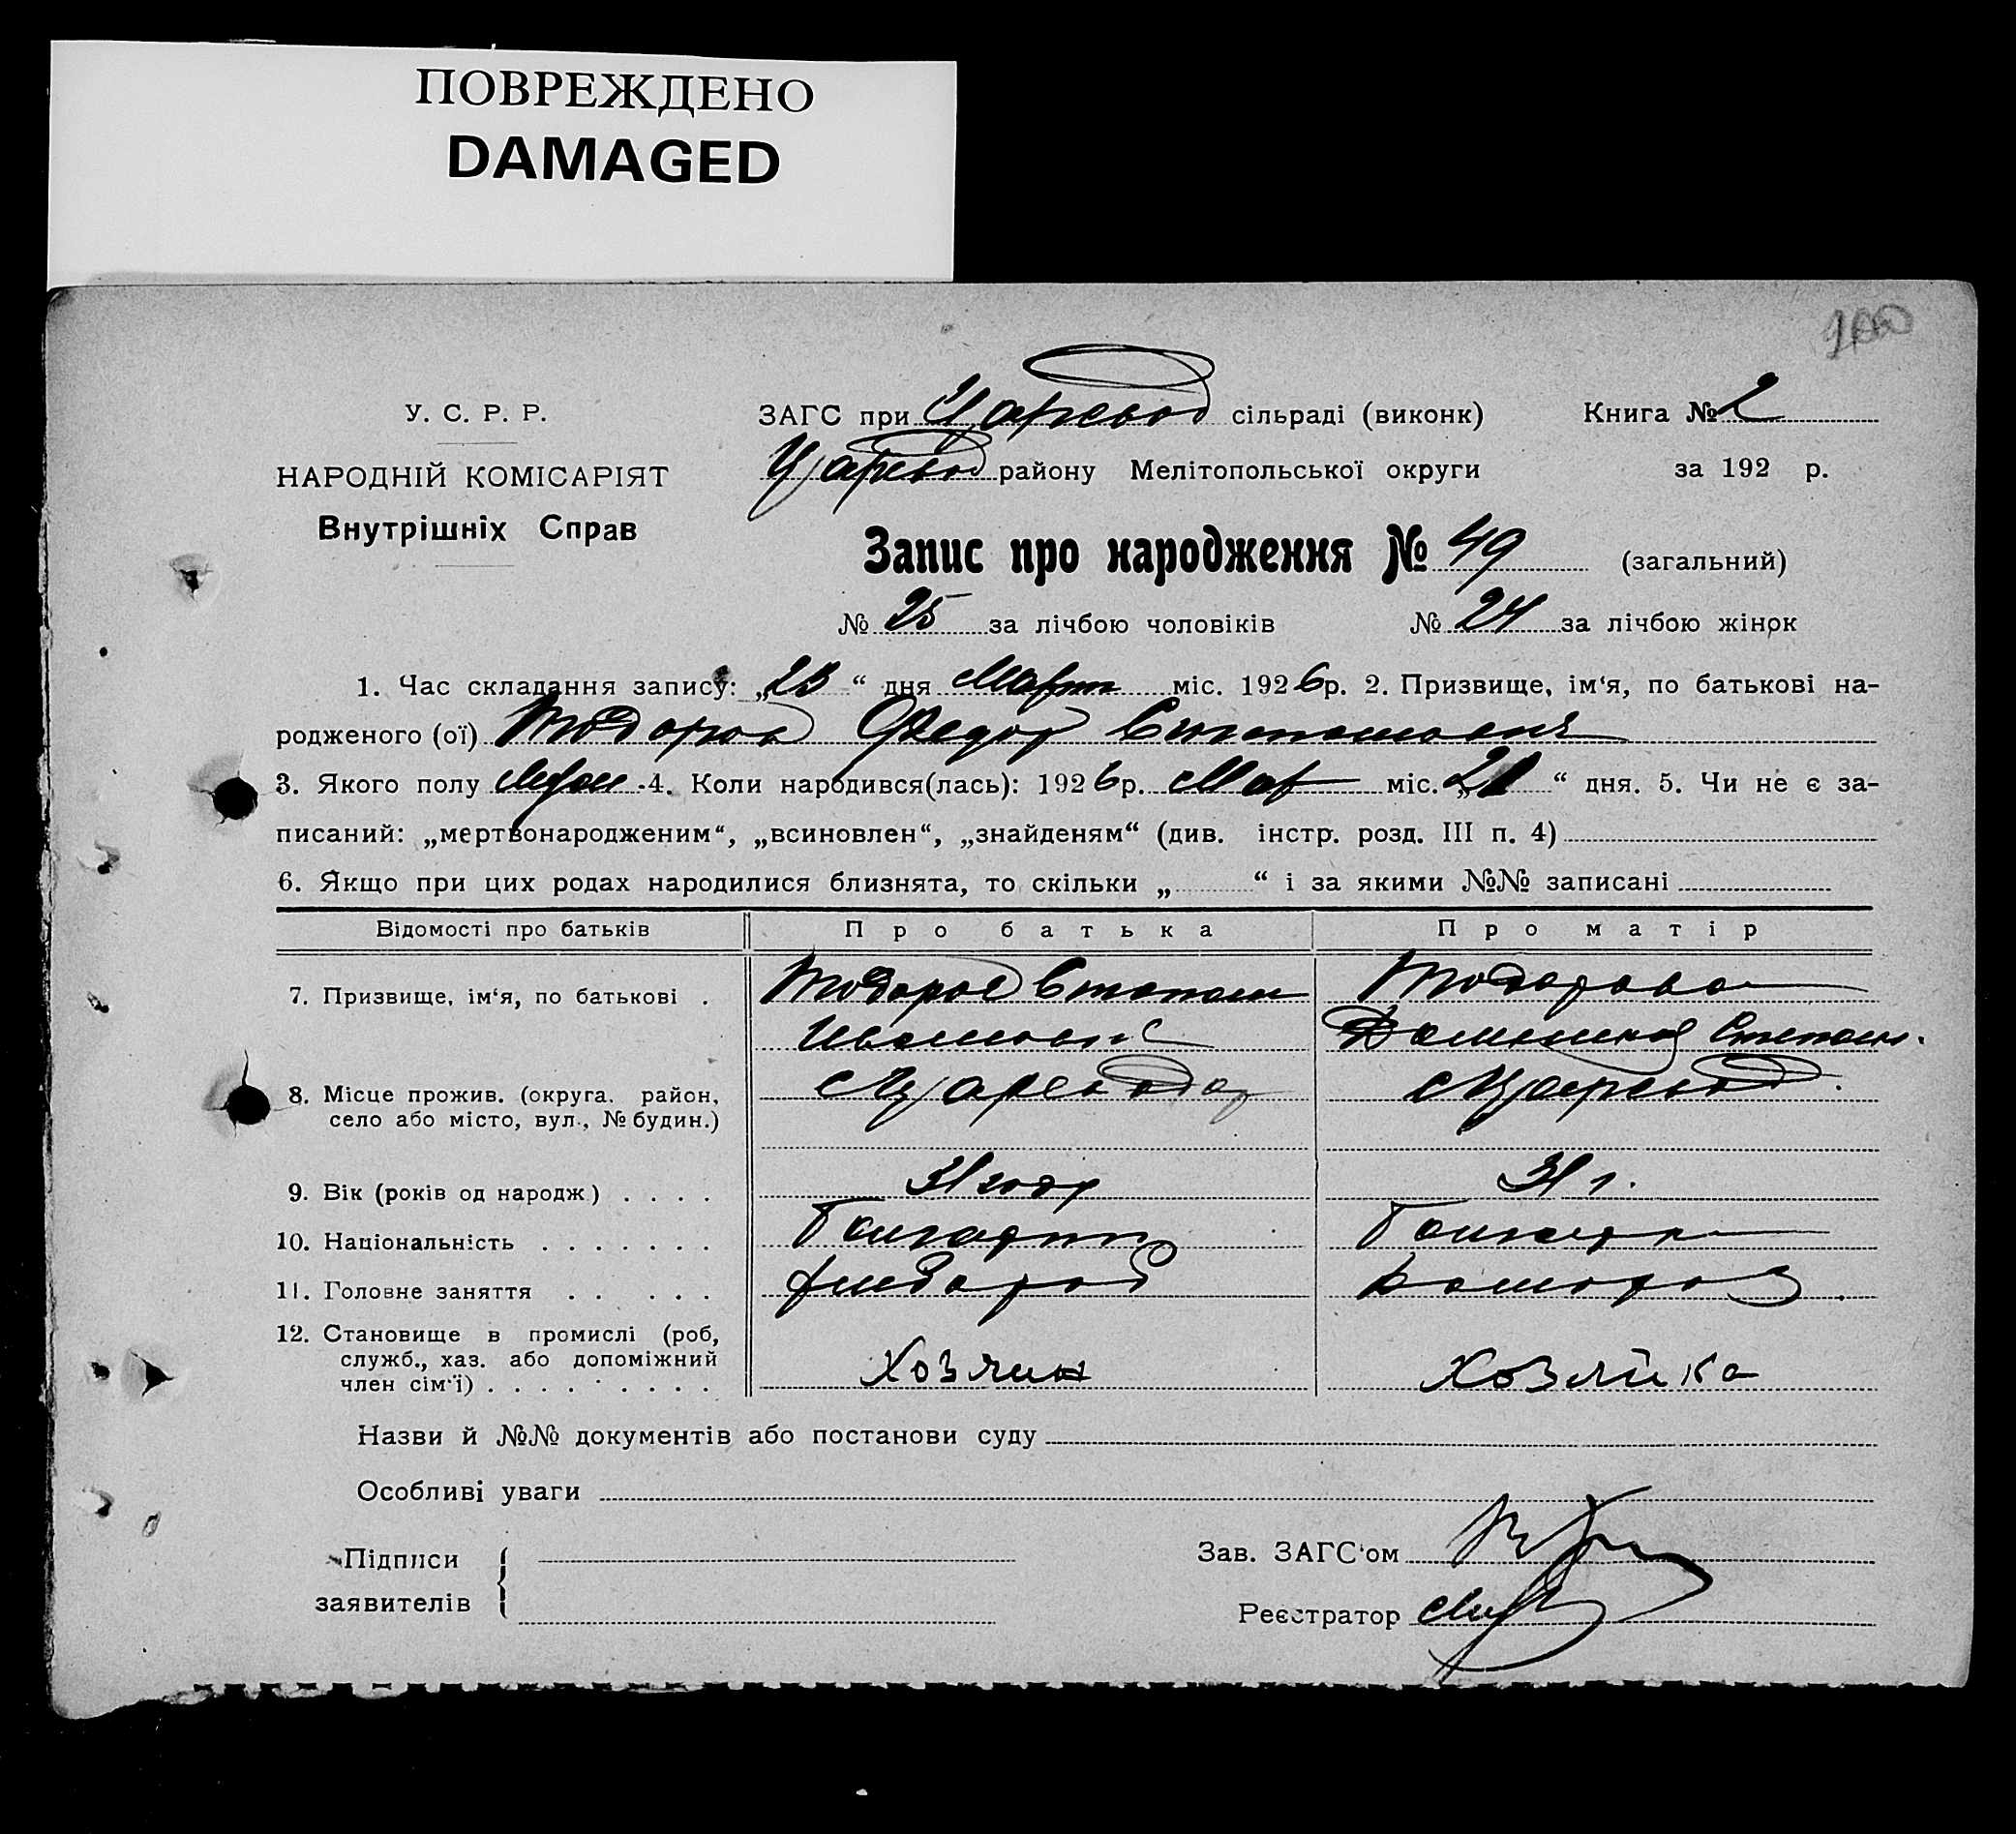 ПОВРЕЖДЕНО
DAMAGED
У. С. Р. Р.
НАРОДНІЙ КОМІСАРІЯТ
Внутрішніх Справ
ЗАГС при Царевод сільраді (виконк) Книга № 2
Царевод району Мелітопольської округи за 192 р.
Запис про народження № 49 (загальний)
№ 25 за лічбою чоловіків № 24 за лічбою жінок
1. Час складання запису: „23“ дня Март міс. 1926 р. 2. Призвище, ім‘я, по батькові на-
родженого (ої) Тодоров Федор Степанович
3. Якого полу муж. 4. Коли народився(лась): 1926 р. Мар міс. „21“ дня. 5. Чи не є за-
писаний: „мертвонародженим“, „всиновлен“, „знайденям“ (див. інстр. розд. III п. 4)
6. Якщо при цих родах народилися близнята, то скільки „ “ і за якими №№ записані
Відомості про батьків Про батька Про матір
7. Призвище, ім‘я, по батькові . Тодоров Степан Тодорова
Иванович Степан.
8. Місце прожив. (округа. район, с Царевод с Царевод.
село або місто, вул., № будин.)
9. Вік (років од народж.) . . . . 31 год 31 г.
10. Національність . . . . . . . Болгарин Болгарка
11. Головне заняття . . . . . хлебороб домохоз.
12. Становище в промислі (роб,
служб., хаз. або допоміжний Хозяин Хозяйка
член сім‘ї) . . . . . . . . .
Назви й №№ документів або постанови суду
Особливі уваги
Підписи
заявителів
Зав. ЗАГС‘ом
Реєстратор